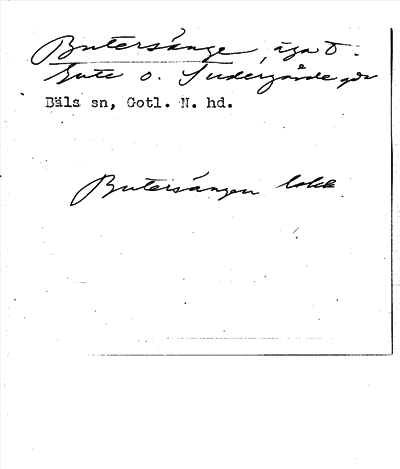 Butersänge, äga t.
Gute o. Sudergårde gdr
Bäls sn, Gotl. N. hd.
Butersängen lokk